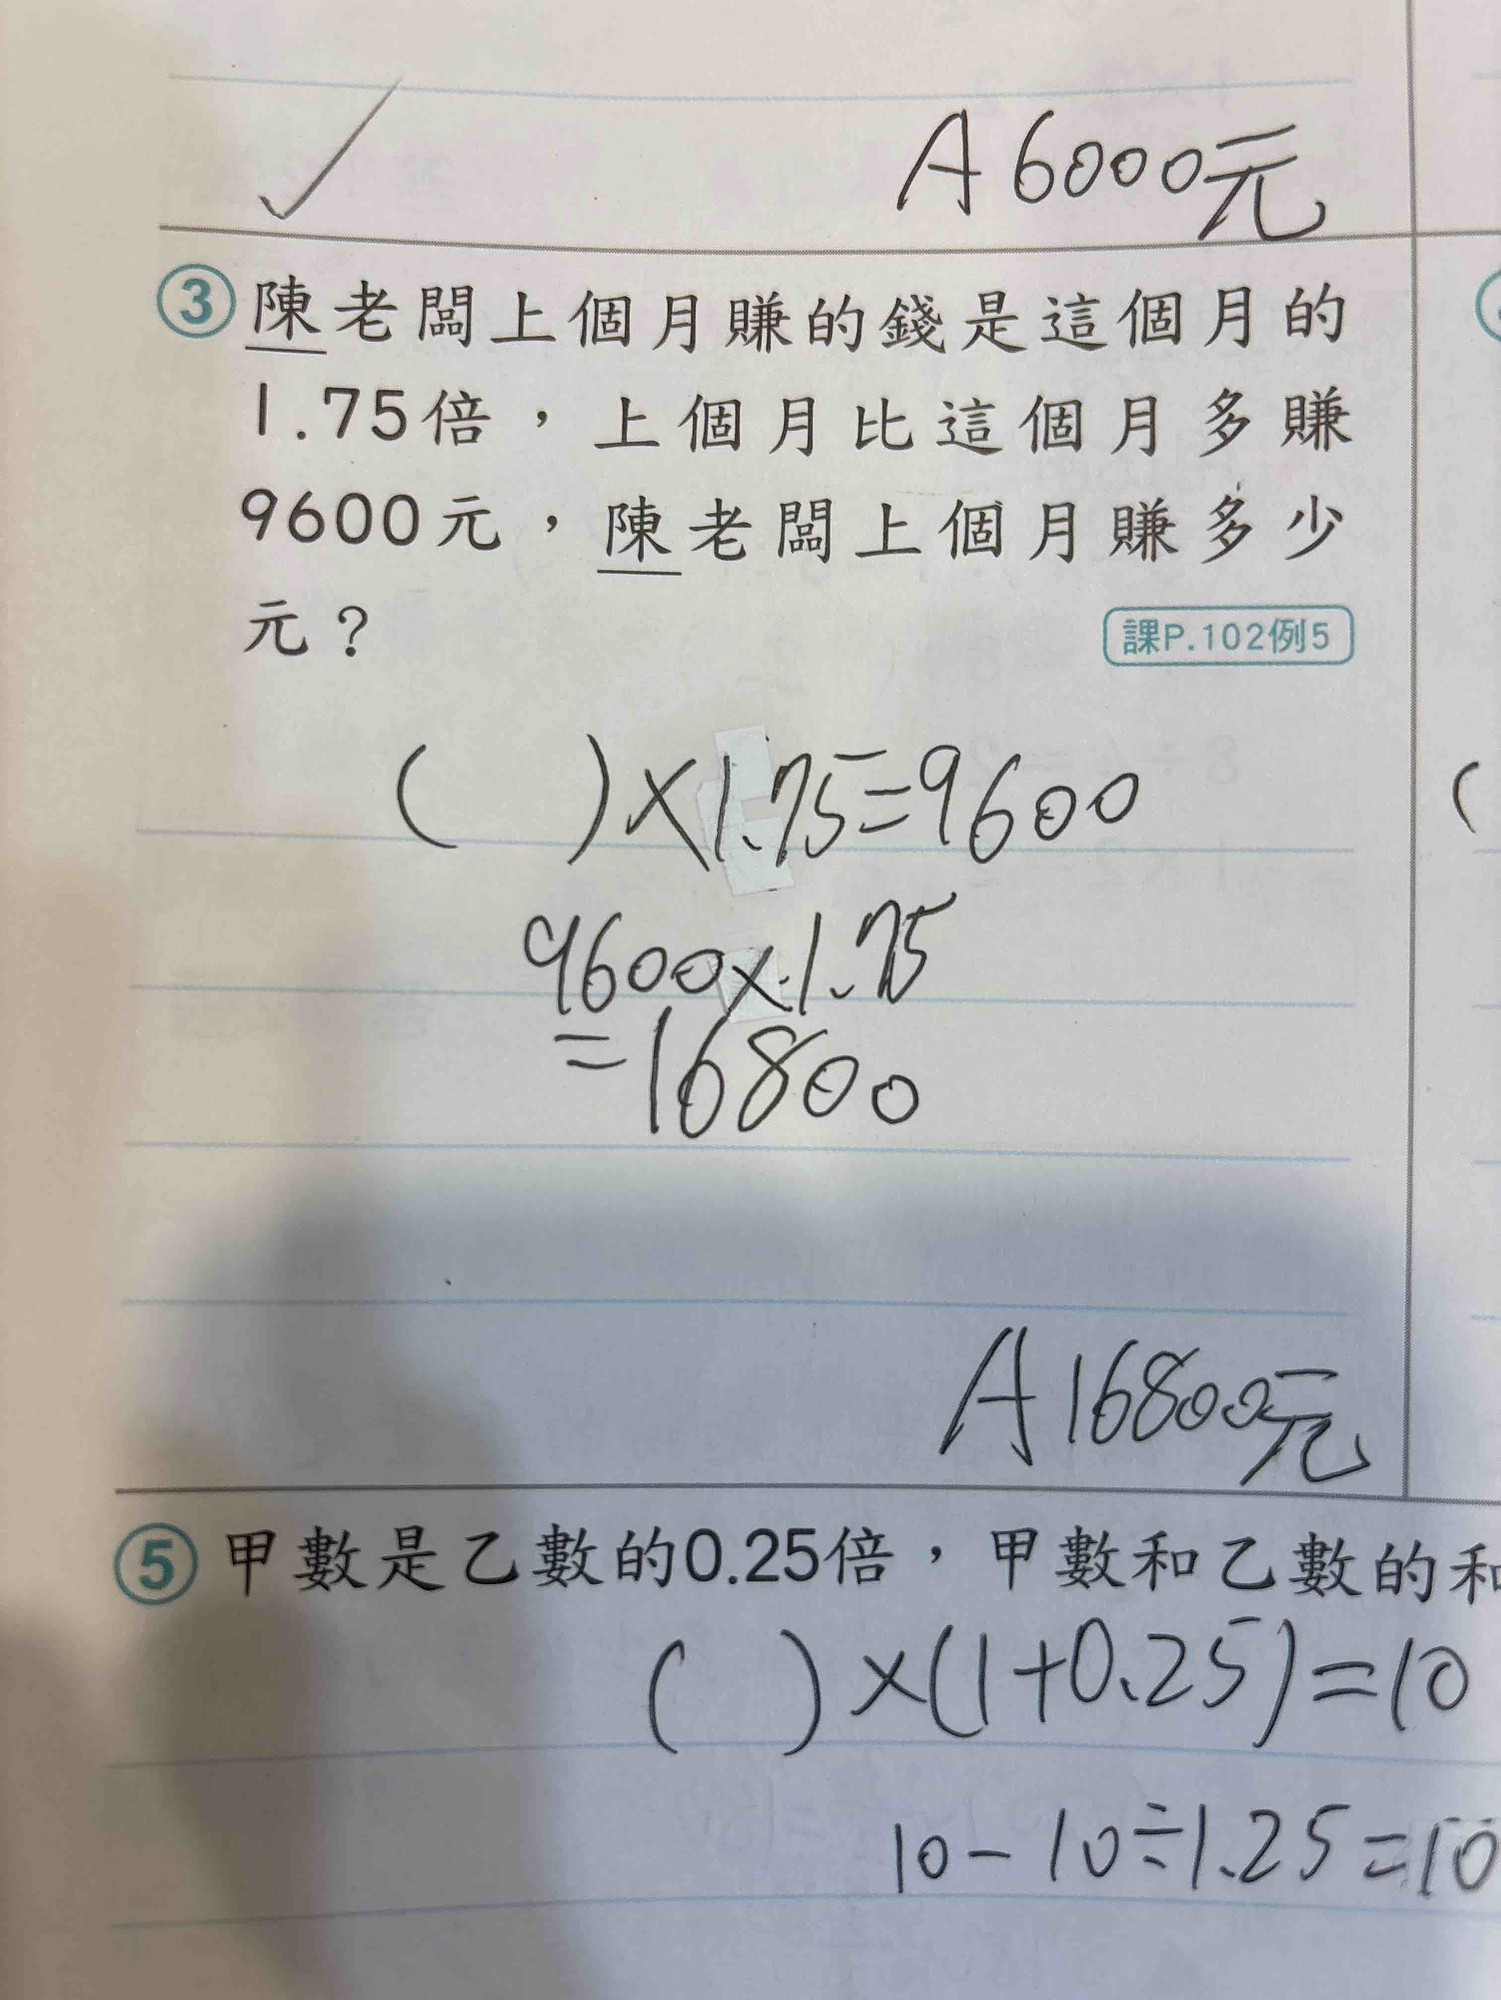 A 6000元
③陳老闆上個月賺的錢是這個月的
1.75倍，上個月比這個月多賺
9600元，陳老闆上個月賺多少
元？
課P.102例5
( )×1.75=9600
9600×1.75
=16800
A 16800元
⑤甲數是乙數的0.25倍，甲數和乙數的和
( )×(1+0.25)=10
10-10÷1.25=10